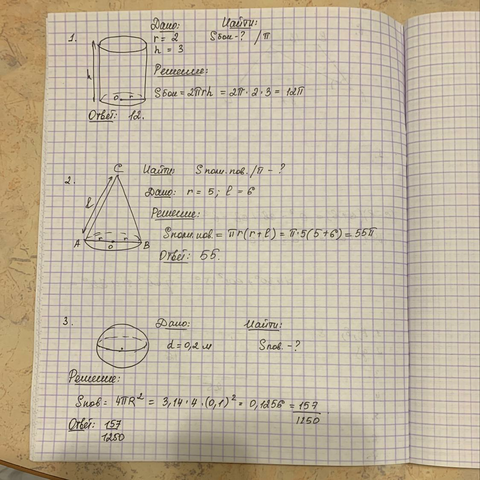 1.
Дано:
Найти:
r = 2
Sбок - ? /π
h = 3
h
Решение:
Sбок = 2πrh = 2π · 2 · 3 = 12π
o r
Ответ: 12.
2.
C
Найти: Sполн.пов. /π - ?
l
Дано: r = 5; l = 6
Решение:
Sполн.пов = πr(r+l) = π·5(5+6) = 55π
A r o r B
Ответ: 55.
3.
Дано:
Найти:
d = 0,2 м
Sпов. - ?
Решение:
Sпов = 4πR² = 3,14 · 4 · (0,1)² = 0,1256 = 157/1250
Ответ: 157/1250